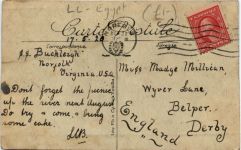 LL - Egypt (£1-)
Carte Postale
17-8-28
Correspondance
J.J. Buckleigh
Norfolk
Virginia. USA
Dont forget the picnic
up the river next August
Do try & come & bring
some cake.
Miss Madge Millican
Wyver Lane,
Belper.
Derby
England